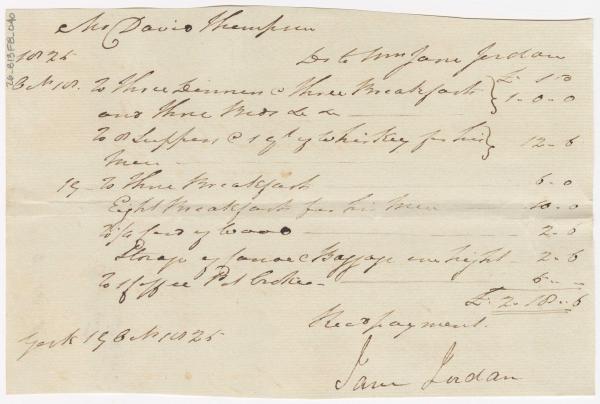 Mr David Thompson
1825 Dr to Mrs Jane Jordan
Oct 18. To Three Dinners & Three Breakfasts £ s D
and Three Beds &c &c 1-0-0
To 8 Suppers & 1 qt of Whiskey for his
Men 12-6
19 To Three Breakfasts 6-0
Eight Breakfasts for his Men 10-0
To ½ Cord of Wood 2-6
Storage of Canoe & Baggage one night 2-6
To 1 Coffee Pot broken 5-
£ 2-18-6
Recd payment.
York 19 Oct 1825
Jane Jordan
26-813 FB-040